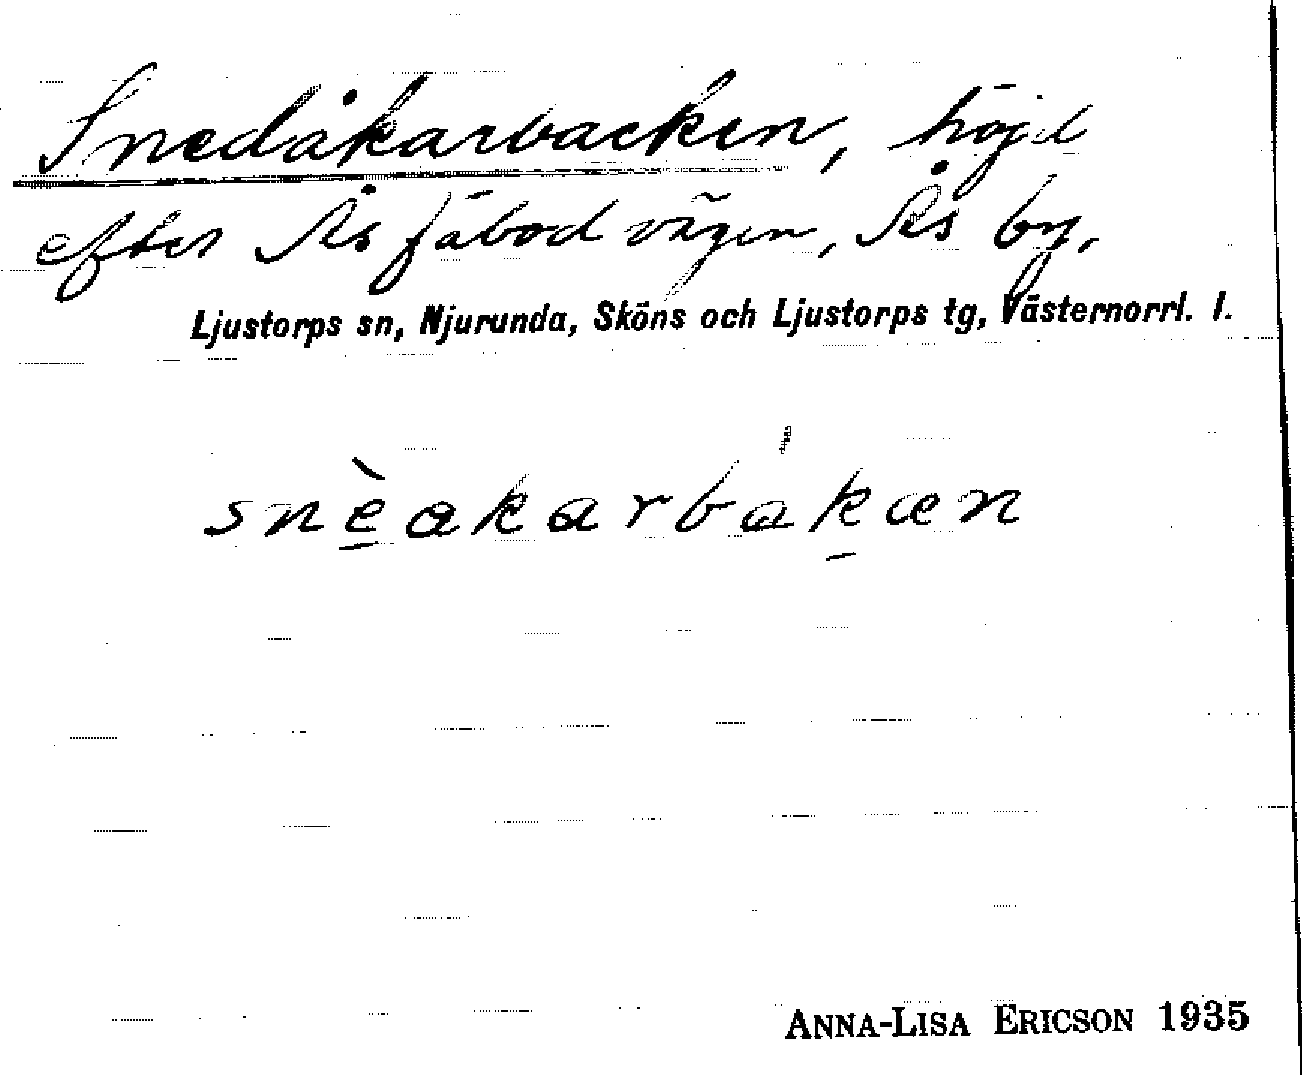 Snedåkarbacken, höjd
efter Ås fäbodvägen, Ås by,
Ljustorps sn, Njurunda, Sköns och Ljustorps tg, Västernorrl. l.
snèakarbákæn
ANNA-LISA ERICSON 1935